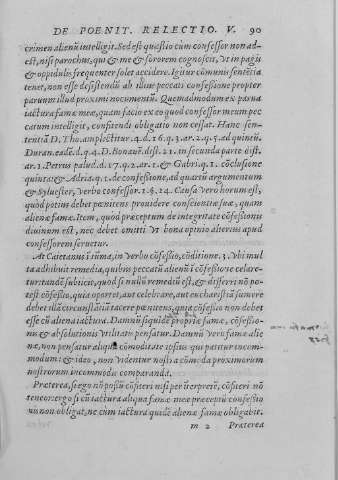 DE POENIT. RELECTIO. V. 90
crimen alienū intelligit. Sed est quæstio cum confessor non ad-
est, nisi parochus, qui & me & sororem cognoscit, Vt in pagis
& oppidulis frequenter solet accidere. Igitur cōmunis sentētia
tenet, non esse desistendū ab illius peccati confessione propter
paruum illud proximi nocumentū. Quemadmodum ex parua
iactura famæ meæ, quam facio ex eo quod confessor meum pec
catum intelligit, confitendi obligatio non cessat. Hanc sen-
tentiā D. Tho. amplectitur. 4. d. 16. q. 3. ar. 2. q. 5. ad quintū.
Duran. ead. d. q. 4. D. Bonau. dist. 21. in secunda parte dist.
ar. 1. Petrus palud. d. 17. q. 2. ar. 1. & Gabri. q. 1. cōclusione
quinta & Adria. q. 1. de confessione, ad quartū argumentum
& Syluester, verbo confessor. 1. §. 24. Causa verò horum est,
quòd potius debet pœnitens prouidere conscientiæ suæ, quam
alienæ famæ. Item, quòd præceptum de integritate cōfessiōis
diuinum est, nec debet omitti Vt bona opinio alterius apud
confessorem seruetur.
At Caietanus ī sūma, in verbo cōfessio, cōditione. 3. Vbi mul
ta adhibuit remedia, quibus peccatū alienū ī cōfessione celare-
tur: tandē subiicit, quod si nullū remediū est, & differri nō po-
test cōfessio, quia oportet, aut celebrare, aut eucharistiā sumere
debet illā circūstātiā tacere pœnitens, quia cōfessio non debet
esse cū aliena iactura. Damnū siquidē propriæ famæ, cōfessio-
nis & absolutionis Vtilitate pensatur. Damnū verò famæ alie
næ, non pensatur aliqua cōmoditate ipsius qui patitur incom-
modum: ideo, non videntur nostra cōmoda proximorum
nostrorum incommodis comparanda.
Præterea, si ego nō possū cōfiteri nisi per īterpretē, cōfiteri nō
teneor: ergo si cū iactura aliqua famæ meæ præceptū confessio
nis non obligat, ne cum iactura quidē alienæ famæ obligabit.
m 2 Præterea